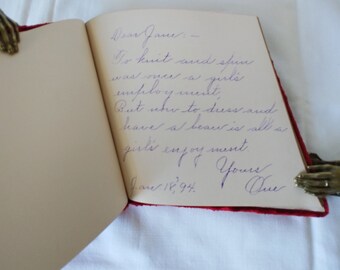 Dear Jane:—
To knit and spin
was once a girl's
employment,
But now to dress and
have a beau is all a
girl's enjoyment
Yours
Jan 18, '94.